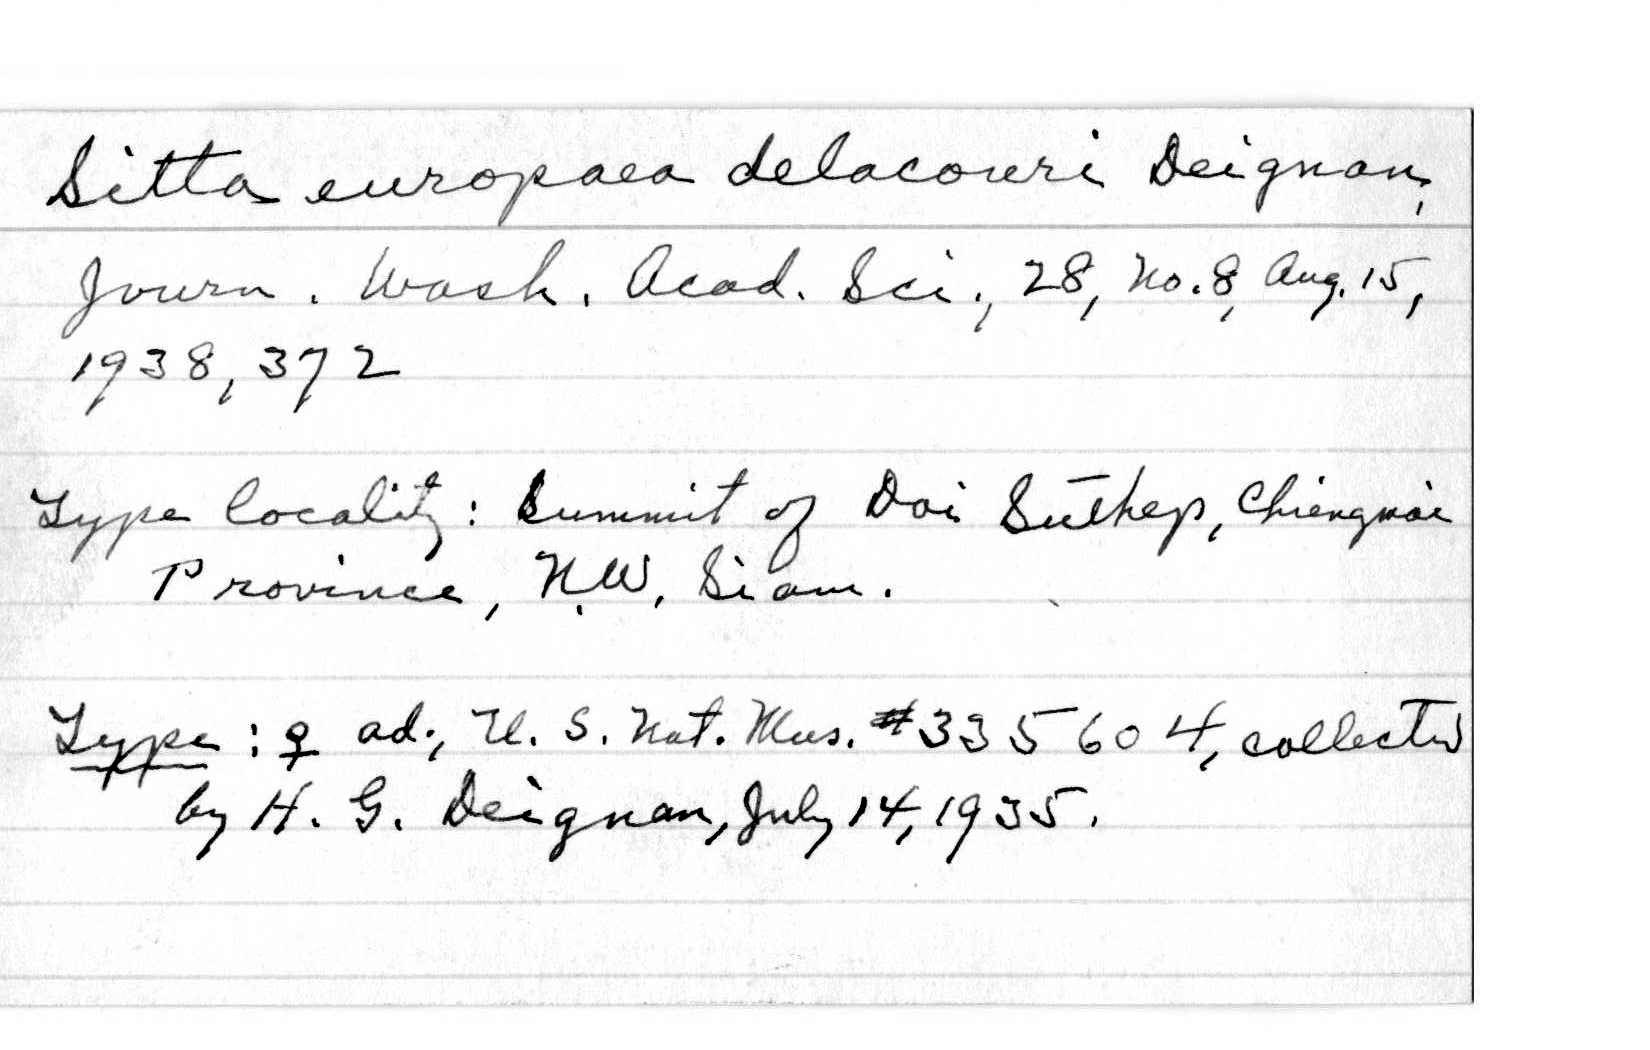 Sitta europaea delacouri Deignan,
Journ. Wash. Acad. Sci., 28, No. 8, Aug. 15,
1938, 372
Type locality: Summit of Doi Sūthep, Chiengmai
Province, N.W. Siam.
Type: ♀ ad., U. S. Nat. Mus. #335604, collected
by H. G. Deignan, July 14, 1935.